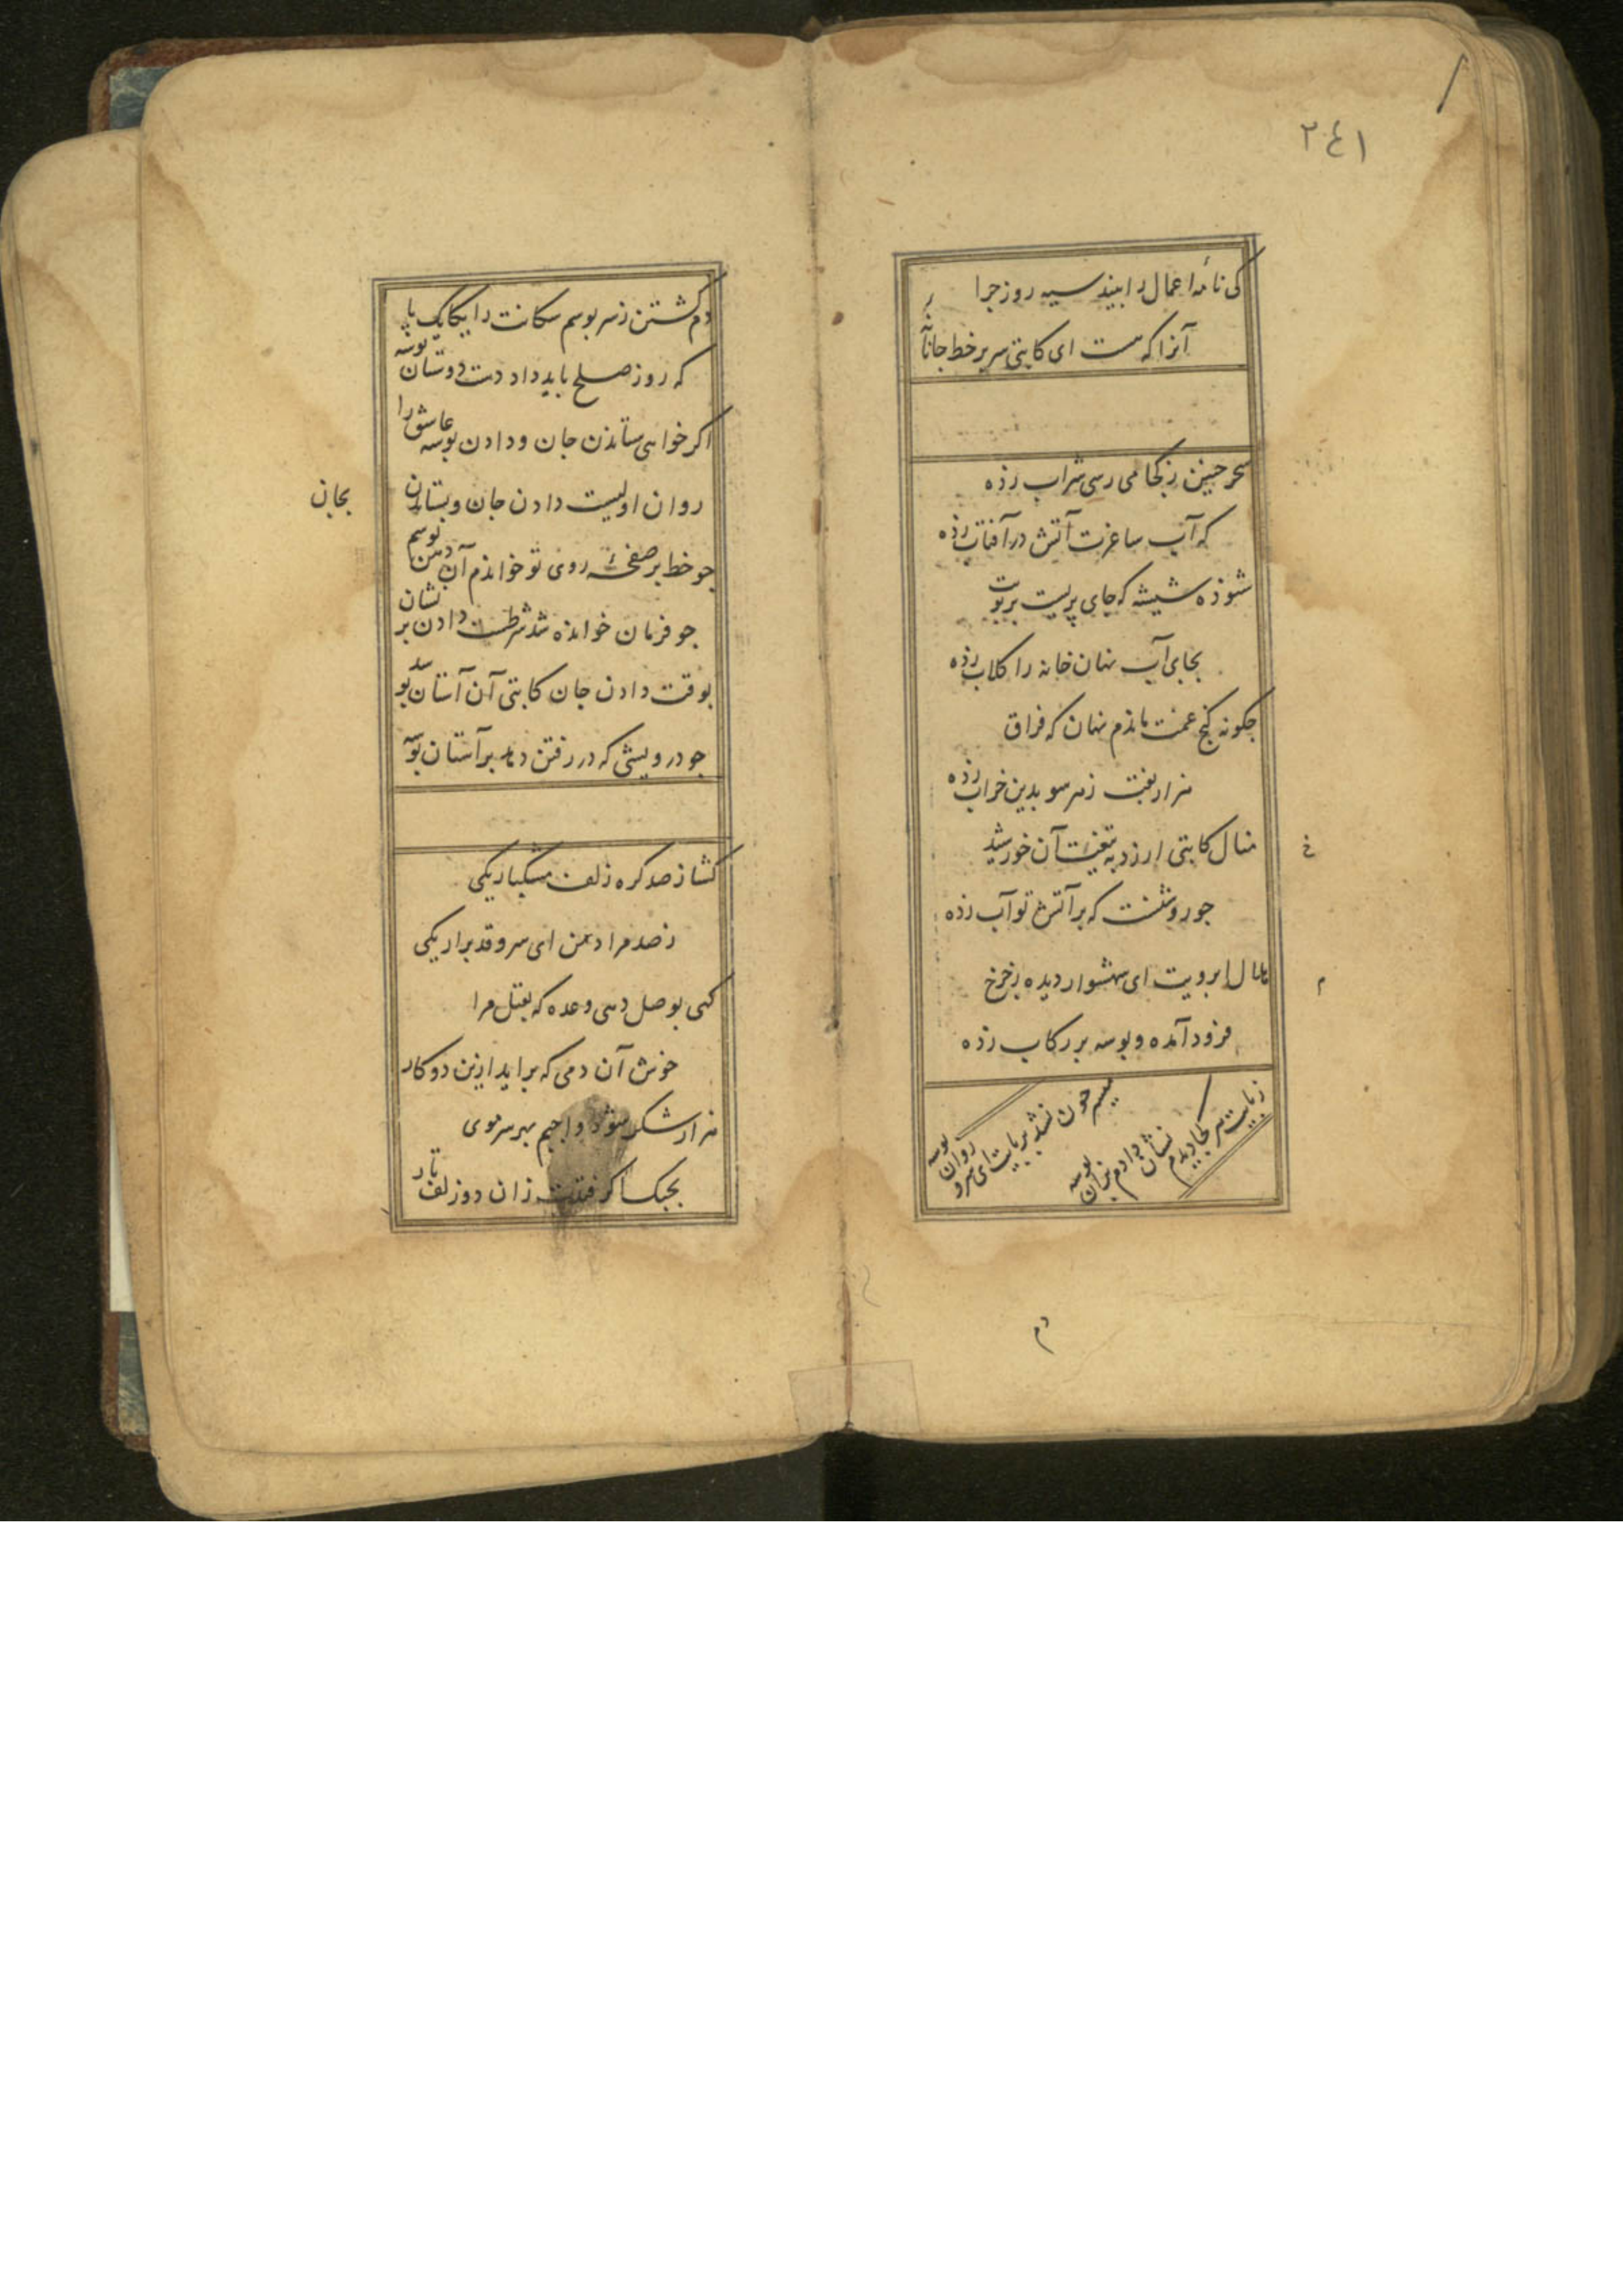 ٢٤١
کی نامهٔ اعمال را بیند سیه روز جزا
آنرا که هست ای کاتبی سر بر خط جانانهٔ
سحر چنین ز کجا می رسی شراب زده
که آب ساغرت آتش در آفتاب زده
شوذه شیشه که جای پریست بر بویت
بجای آب نهان خانه را کلاب زده
جکونه کنج غمت ماندم نهان که فراق
هزار نقب ز هر سو بدین خراب زده
منال کاتبی ار زد به تیغت آن خورشید
جو روشنست که بر آتش تو آب زده
هلال ابرویت ای شهسوار دیده ز جرخ
فرود آمده و بوسه بر رکاب زده
ز پایت سر کجا دیدم نشان دادم بران بوسه
میسر جون نشد بر پایت ای سرو روان بوسه
دم
دم کشتن ز سر بوسم سکانت را یکایک پا
که روز صلح باید داد دست دوستان بوسه
اکر خواهی ستاندن جان و دادن بوسه عاشق را
روان اولیست دادن جان و بستان
بجان
جو خط بر صفحهٔ روی تو خواندم آن دهن بوسم
جو فرمان خوانده شد شرطست دادن بر نشان
بوقت دادن جان کاتبی آن آستان بوسد
جو درویشی که در رفتن دهد بر آستان بوسه
کشا ز صد کره زلف مشکبار یکی
ز صد مراد من ای سرو قد برار یکی
کهی بوصل دهی وعده که بقتل مرا
خوش آن دمی که براید ازین دو کار
هزار شکر شود واجبم بهر سر موی
بجنک اکر فتدت زان دو زلف تار